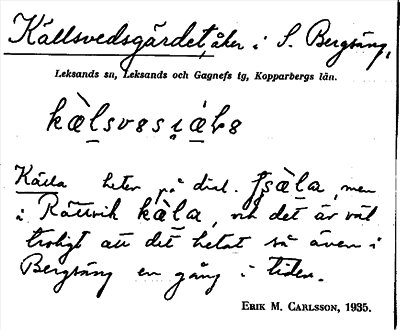 Källsvedsgärdet, åker i S. Bergsäng,
Leksands sn, Leksands och Gagnefs tg, Kopparbergs län.
Källa heter på dial. , men
i Rättvik kä̀la, och det är väl
troligt att det hetat så även i
Bergsäng en gång i tiden.
ERIK M. CARLSSON, 1935.